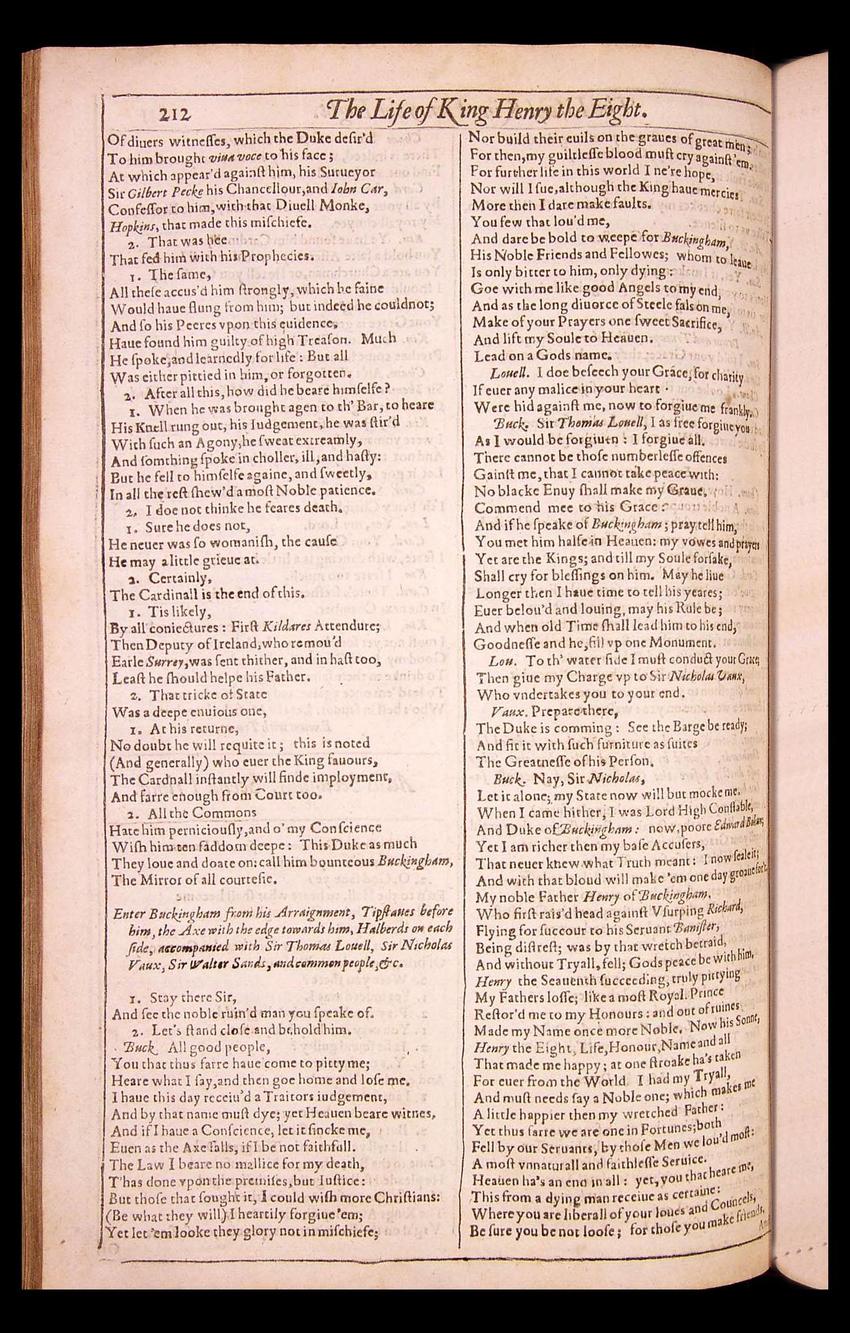 212
The Life of King Henry the Eight.
Of diuers witnesses, which the Duke desir'd
To him brought viua voce to his face;
At which appear'd against him, his Surueyor
Sir Gilbert Pecke his Chancellour, and Iohn Car,
Confessor to him, with that Diuell Monke,
Hopkins, that made this mischiefe.
2. That was hee
That fed him with his Prophecies.
1. The same,
All these accus'd him strongly, which he faine
Would haue flung from him; but indeed he could not;
And so his Peeres vpon this euidence,
Haue found him guilty of high Treason. Much
He spoke, and learnedly for life: But all
Was either pittied in him, or forgotten.
2. After all this, how did he beare himselfe?
1. When he was brought agen to th' Bar, to heare
His Knell rung out, his Iudgement, he was stir'd
With such an Agony, he sweat extreamly,
And somthing spoke in choller, ill, and hasty:
But he fell to himselfe againe, and sweetly,
In all the rest shew'd a most Noble patience.
2. I doe not thinke he feares death.
1. Sure he does not,
He neuer was so womanish, the cause
He may a little grieue at.
2. Certainly,
The Cardinall is the end of this.
1. Tis likely,
By all coniectures: First Kildares Attendure;
Then Deputy of Ireland, who remou'd
Earle Surrey, was sent thither, and in hast too,
Least he should helpe his Father.
2. That tricke of State
Was a deepe enuious one,
1. At his returne,
No doubt he will requite it; this is noted
(And generally) who euer the King fauours,
The Cardnall instantly will finde imployment,
And farre enough from Court too.
2. All the Commons
Hate him perniciously, and o' my Conscience
Wish him ten faddom deepe: This Duke as much
They loue and doate on: call him bounteous Buckingham,
The Mirror of all courtesie.
Enter Buckingham from his Arraignment, Tipstaues before
him, the Axe with the edge towards him, Halberds on each
side, accompanied with Sir Thomas Louell, Sir Nicholas
Vaux, Sir Walter Sands, and common people, &c.
1. Stay there Sir,
And see the noble ruin'd man you speake of.
2. Let's stand close and behold him.
Buck. All good people,
You that thus farre haue come to pitty me;
Heare what I say, and then goe home and lose me.
I haue this day receiu'd a Traitors iudgement,
And by that name must dye; yet Heauen beare witnes,
And if I haue a Conscience, let it sincke me,
Euen as the Axe falls, if I be not faithfull.
The Law I beare no mallice for my death,
T'has done vpon the premises, but Iustice:
But those that sought it, I could wish more Christians:
(Be what they will) I heartily forgiue 'em;
Yet let 'em looke they glory not in mischiefe;
Nor build their euils on the graues of great men;
For then, my guiltlesse blood must cry against 'em.
For further life in this world I ne're hope,
Nor will I sue, although the King haue mercies
More then I dare make faults.
You few that lou'd me,
And dare be bold to weepe for Buckingham,
His Noble Friends and Fellowes; whom to leaue
Is only bitter to him, only dying:
Goe with me like good Angels to my end,
And as the long diuorce of Steele fals on me,
Make of your Prayers one sweet Sacrifice,
And lift my Soule to Heauen.
Lead on a Gods name.
Louell. I doe beseech your Grace, for charity
If euer any malice in your heart
Were hid against me, now to forgiue me frankly.
Buck. Sir Thomas Louell, I as free forgiue you
As I would be forgiuen: I forgiue all.
There cannot be those numberlesse offences
Gainst me, that I cannot take peace with:
No blacke Enuy shall make my Graue,
Commend mee to his Grace:
And if he speake of Buckingham; pray tell him,
You met him halfe in Heauen: my vowes and prayers
Yet are the Kings; and till my Soule forsake,
Shall cry for blessings on him. May he liue
Longer then I haue time to tell his yeares;
Euer belou'd and louing, may his Rule be;
And when old Time shall lead him to his end,
Goodnesse and he, fill vp one Monument.
Lou. To th' water side I must conduct your Grace;
Then giue my Charge vp to Sir Nicholas Vaux,
Who vndertakes you to your end.
Vaux. Prepare there,
The Duke is comming: See the Barge be ready;
And fit it with such furniture as suites
The Greatnesse of his Person.
Buck. Nay, Sir Nicholas,
Let it alone; my State now will but mocke me.
When I came hither, I was Lord High Constable,
And Duke of Buckingham: now, poore Edward Bohun;
Yet I am richer then my base Accusers,
That neuer knew what Truth meant: I now seale it;
And with that bloud will make 'em one day groane for't.
My noble Father Henry of Buckingham,
Who first rais'd head against Vsurping Richard,
Flying for succour to his Seruant Banister,
Being distrest; was by that wretch betraid,
And without Tryall, fell; Gods peace be with him.
Henry the Seauenth succeeding, truly pittying
My Fathers losse; like a most Royall Prince
Restor'd me to my Honours: and out of ruines
Made my Name once more Noble. Now his Sonne,
Henry the Eight, Life, Honour, Name and all
That made me happy; at one stroake ha's taken
For euer from the World. I had my Tryall,
And must needs say a Noble one; which makes me
A little happier then my wretched Father:
Yet thus farre we are one in Fortunes; both
Fell by our Seruants, by those Men we lou'd most:
A most vnnaturall and faithlesse Seruice.
Heauen ha's an end in all: yet, you that heare me,
This from a dying man receiue as certaine:
Where you are liberall of your loues and Councels,
Be sure you be not loose; for those you make friends,
And